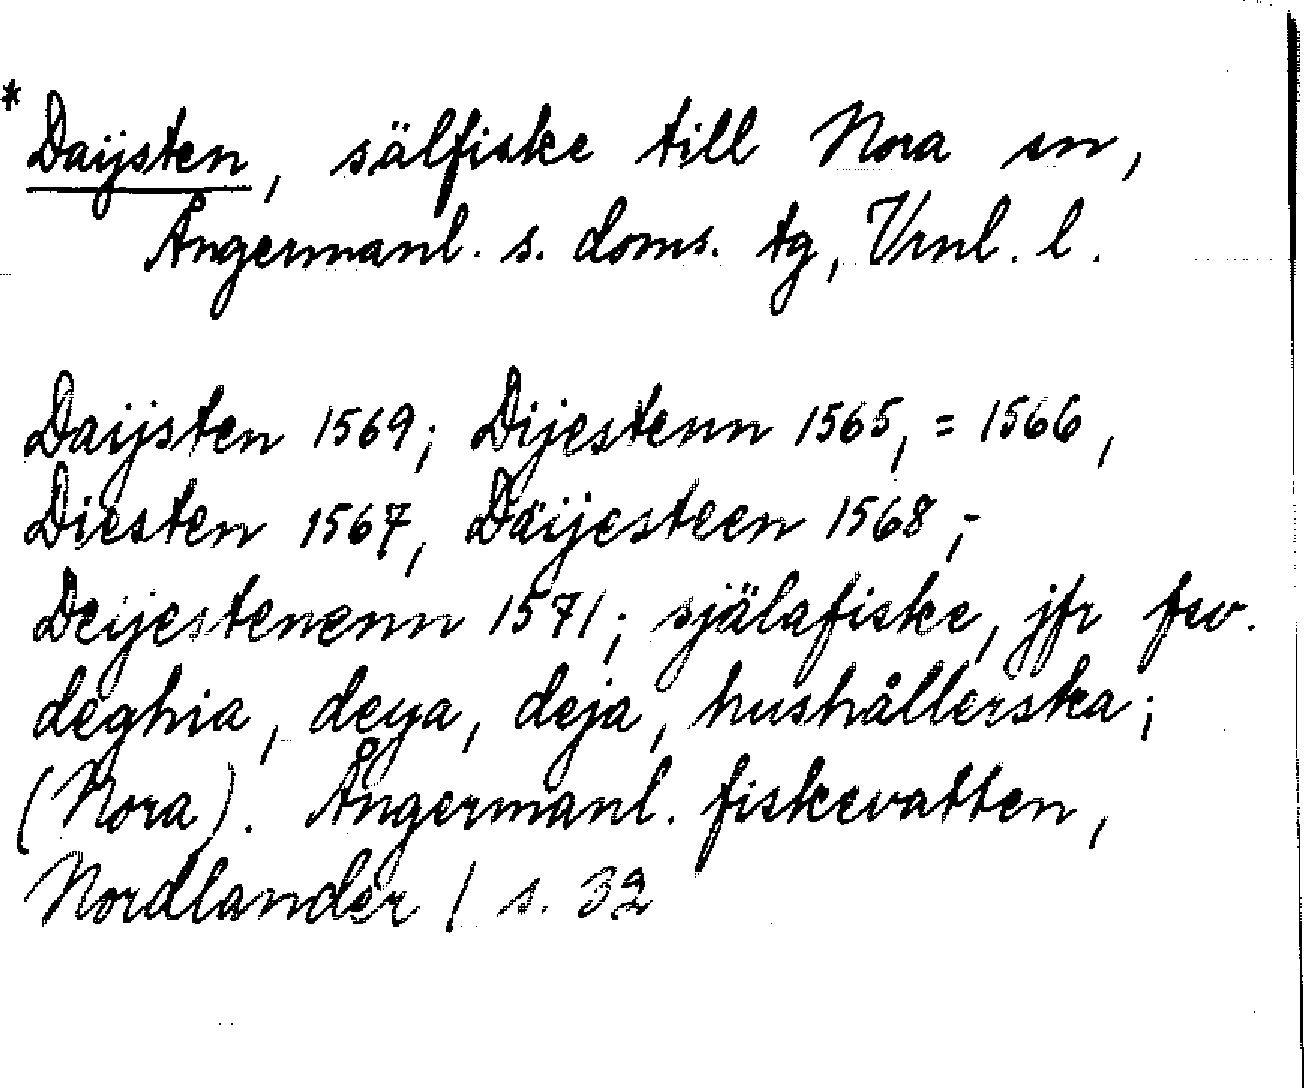 * Daijsten, sälfiske till Nora sn,
Ångermanl. s. doms. tg, Vrnl. l.
Daijsten 1569; Dijestenn 1565, = 1566,
Diesten 1567, Däijesteen 1568;
Deijestenenn 1571; själafiske, jfr fsv.
deghia, deya, deja, hushållerska;
(Nora). Ångermanl. fiskevatten,
Nordlander / s. 32